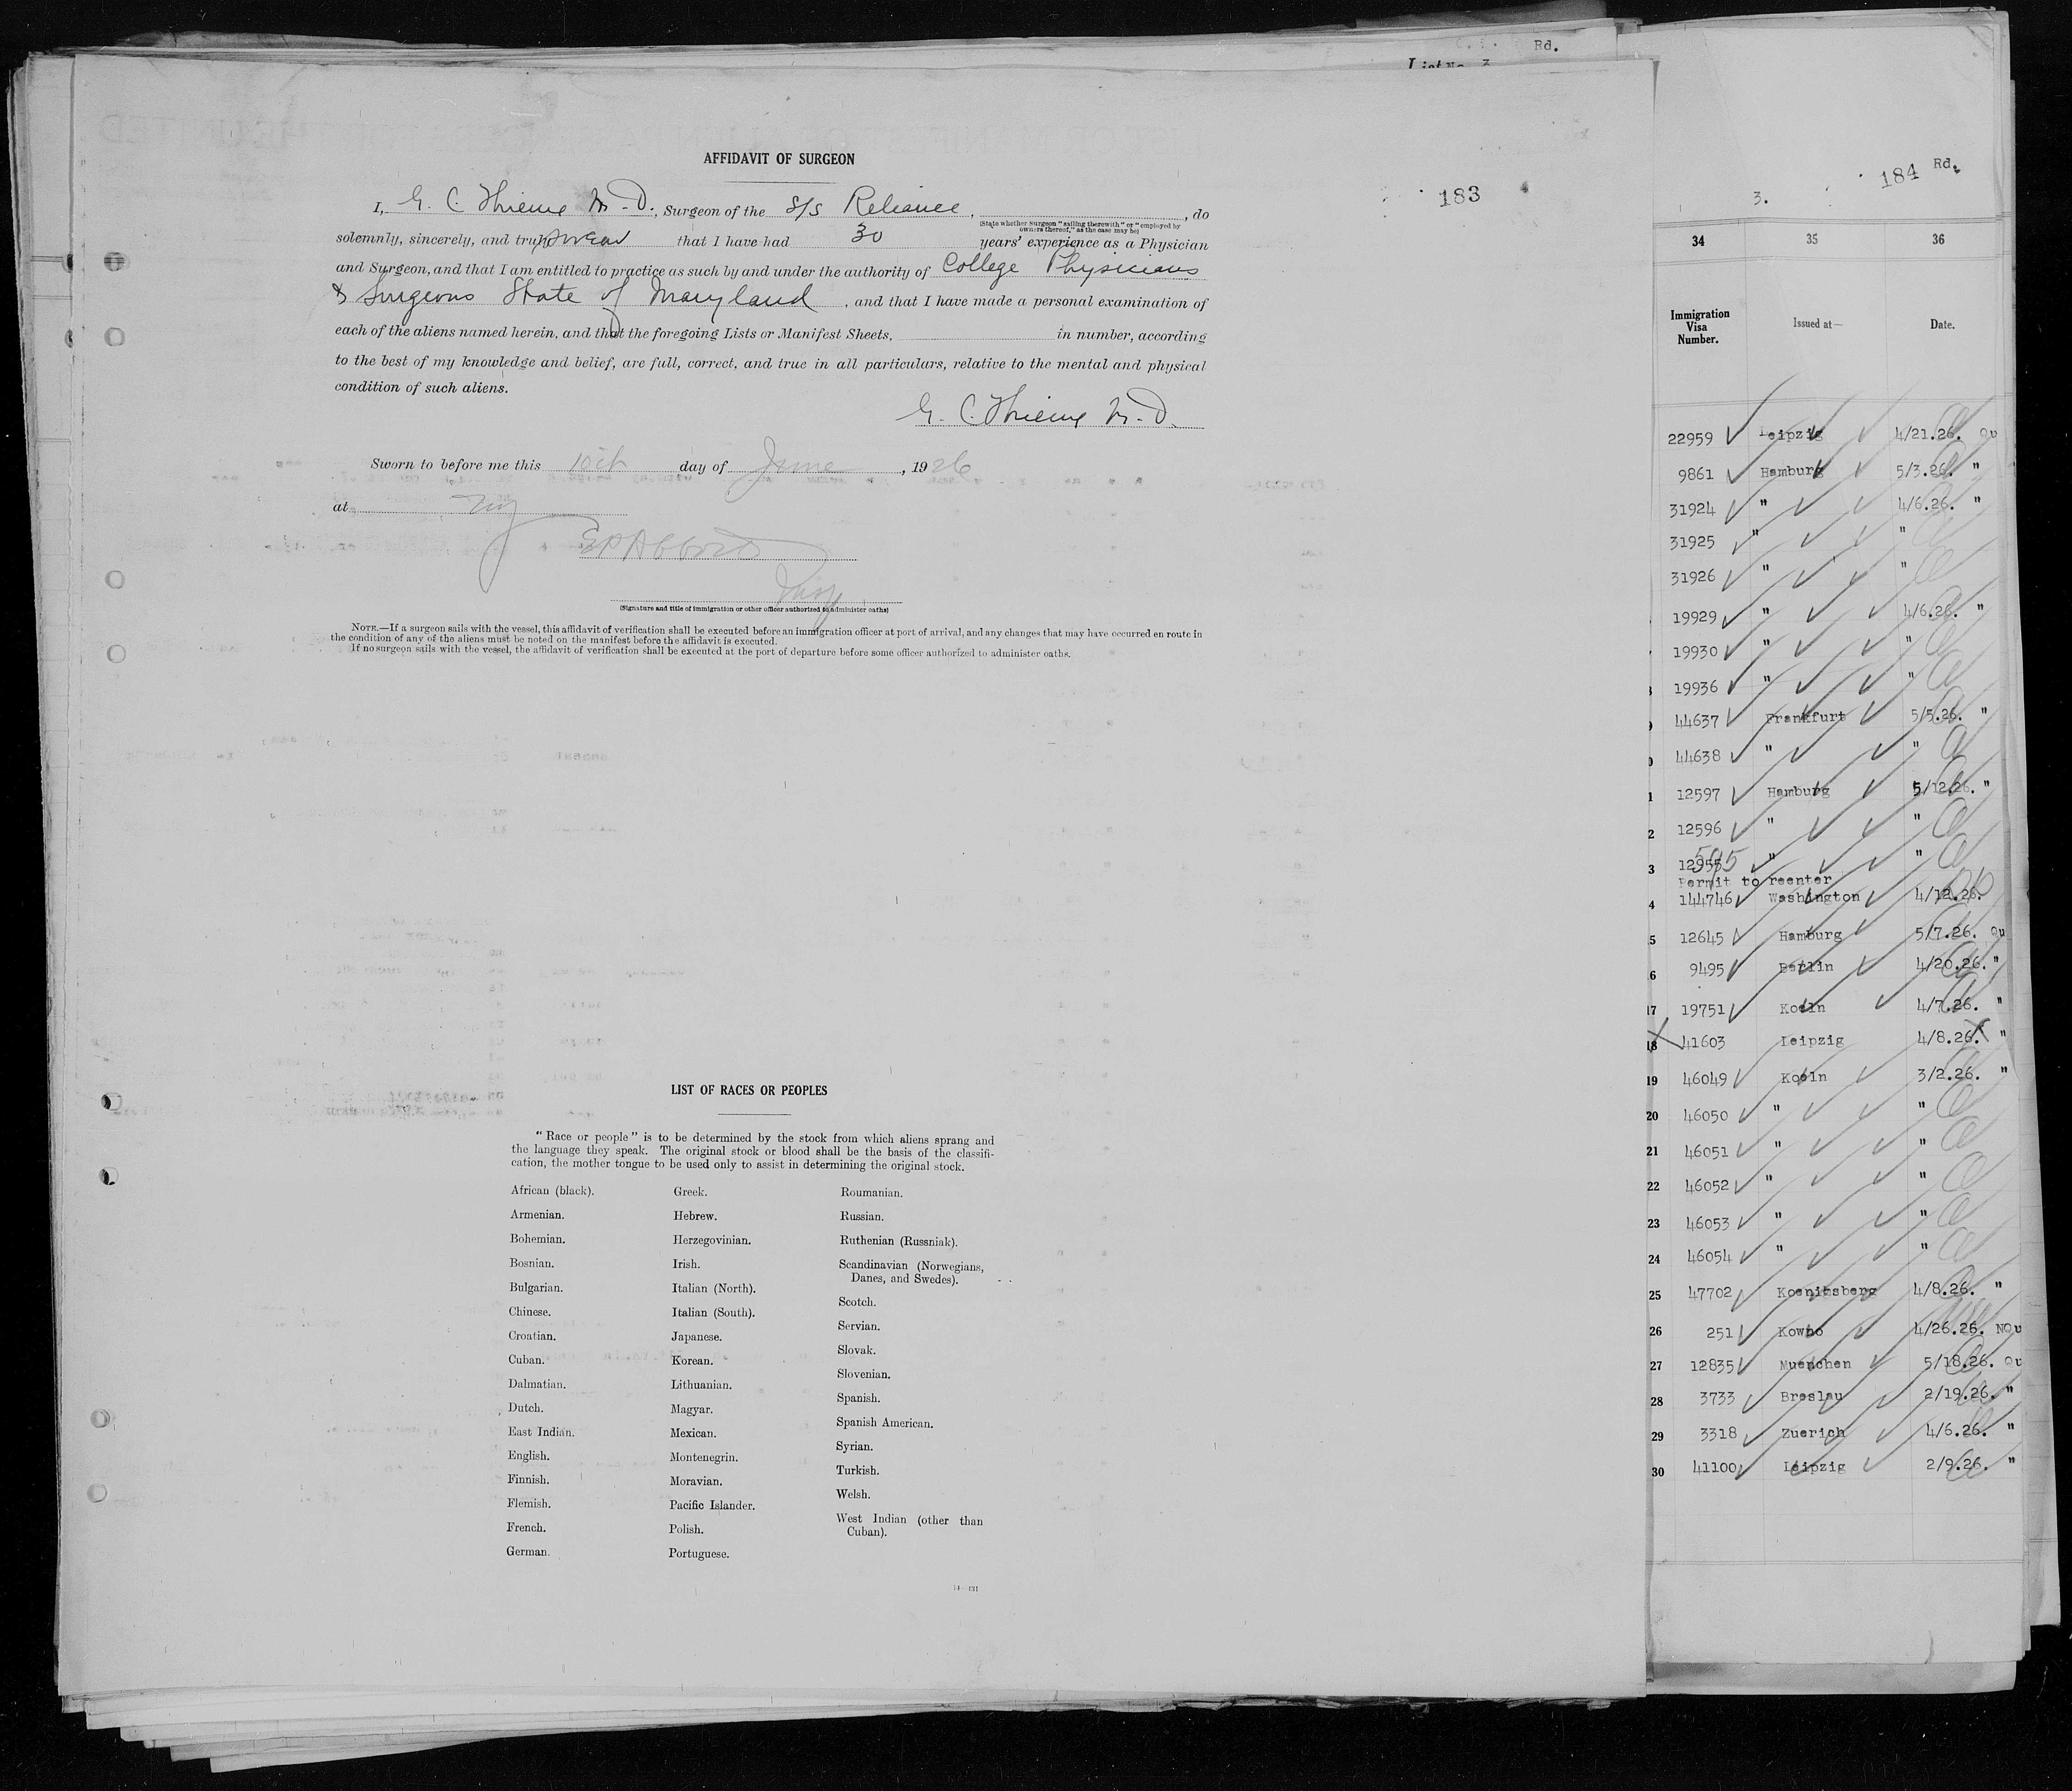 Rd.
List No. 3
AFFIDAVIT OF SURGEON
183
I, G. C. Thieme M.D., Surgeon of the S/S Reliance, , do
(State whether Surgeon "sailing therewith" or "employed by
owners thereof," as the case may be)
solemnly, sincerely, and truly swear that I have had 30 years' experience as a Physician
and Surgeon, and that I am entitled to practice as such by and under the authority of College Physicians
& Surgeons State of Maryland, and that I have made a personal examination of
each of the aliens named herein, and that the foregoing Lists or Manifest Sheets, in number, according
to the best of my knowledge and belief, are full, correct, and true in all particulars, relative to the mental and physical
condition of such aliens.
G. C. Thieme M.D.
Sworn to before me this 10th day of June, 1926
at NY
(Signature and title of immigration or other officer authorized to administer oaths)
NOTE.—If a surgeon sails with the vessel, this affidavit of verification shall be executed before an immigration officer at port of arrival, and any changes that may have occurred en route in
the condition of any of the aliens must be noted on the manifest before the affidavit is executed.
If no surgeon sails with the vessel, the affidavit of verification shall be executed at the port of departure before some officer authorized to administer oaths.
LIST OF RACES OR PEOPLES
"Race or people" is to be determined by the stock from which aliens sprang and
the language they speak. The original stock or blood shall be the basis of the classifi-
cation, the mother tongue to be used only to assist in determining the original stock.
African (black).
Armenian.
Bohemian.
Bosnian.
Bulgarian.
Chinese.
Croatian.
Cuban.
Dalmatian.
Dutch.
East Indian.
English.
Finnish.
Flemish.
French.
German.
Greek.
Hebrew.
Herzegovinian.
Irish.
Italian (North).
Italian (South).
Japanese.
Korean.
Lithuanian.
Magyar.
Mexican.
Montenegrin.
Moravian.
Pacific Islander.
Polish.
Portuguese.
Roumanian.
Russian.
Ruthenian (Russniak).
Scandinavian (Norwegians,
Danes, and Swedes).
Scotch.
Servian.
Slovak.
Slovenian.
Spanish.
Spanish American.
Syrian.
Turkish.
Welsh.
West Indian (other than
Cuban).
184 Rd.
3.
34 35 36
Immigration Visa Number. Issued at— Date.
22959 Leipzig 4/21.26. Qu
9861 Hamburg 5/3.26. "
31924 " 4/6.26. "
31925 " "
31926 " "
19929 " 4/6.26. "
19930 " "
19936 " "
44637 Frankfurt 5/5.26. "
44638 " "
12597 Hamburg 5/12.26. "
2 12596 " "
3 12955 595 " "
Permit to reenter
4 144746 Washington 4/12.26.
5 12645 Hamburg 5/7.26. Qu
6 9495 Berlin 4/20.26. "
17 19751 Koeln 4/7.26. "
18 41603 Leipzig 4/8.26. "
19 46049 Koeln 3/2.26. "
20 46050 " "
21 46051 " "
22 46052 " "
23 46053 " "
24 46054 " "
25 47702 Koenihsberg 4/8.26. "
26 251 Kowno 4/26.26. NQu
27 12835 Muenchen 5/18.26. Qu
28 3733 Breslau 2/19.26. "
29 3318 Zuerich 4/6.26. "
30 41100 Leipzig 2/9.26. "